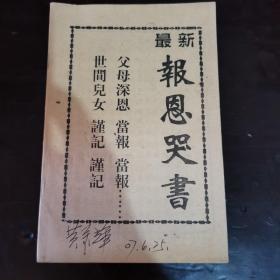 最新
報恩哭書
父母深恩 當報 當報……
世間兒女 謹記 謹記
07.6.25.